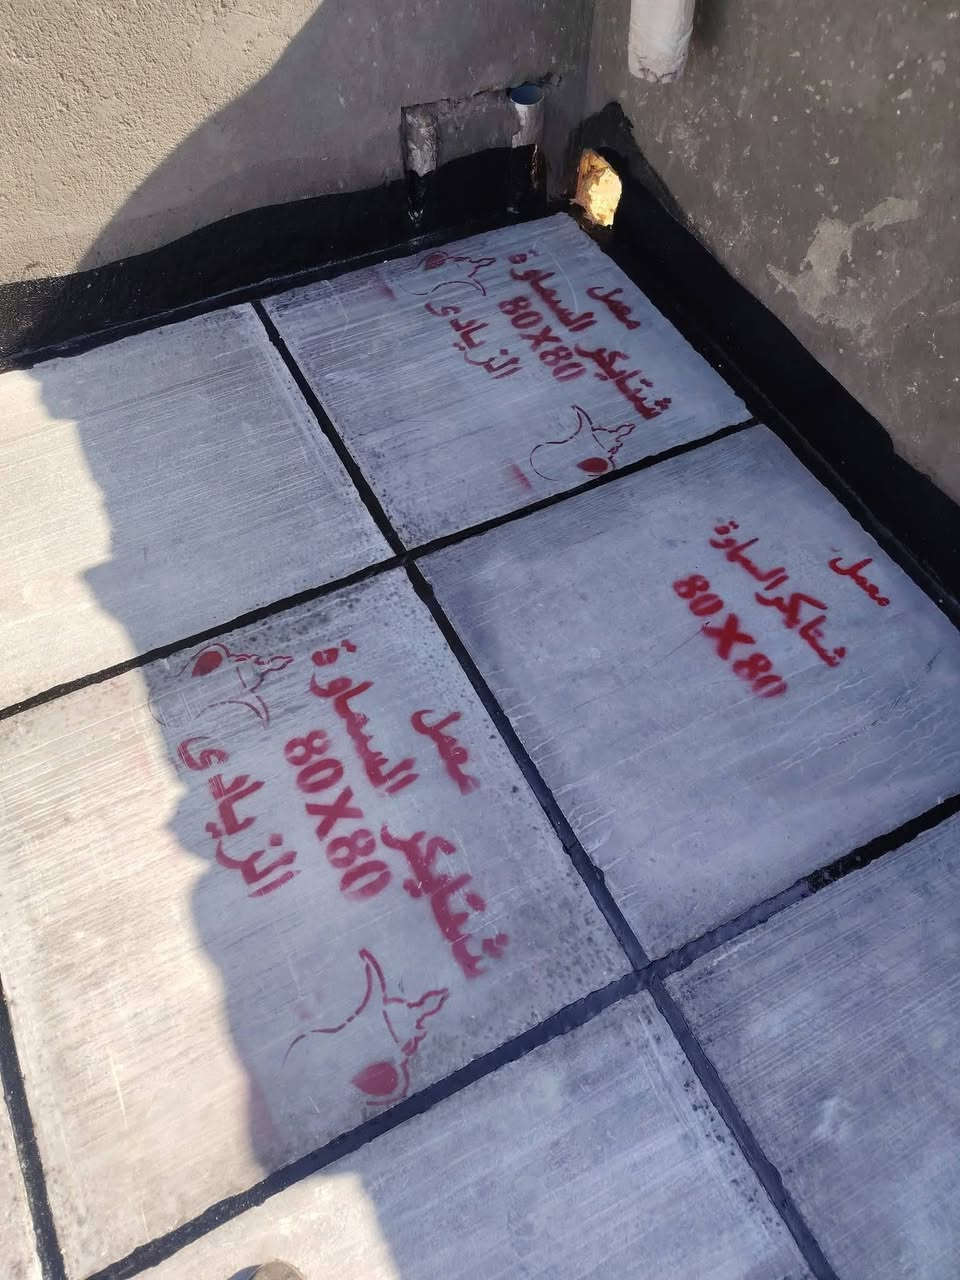 معمل
شتايكر السماوة
80X80
الزيادي
معمل
شتايكر السماوة
80X80
معمل
شتايكر السماوة
80X80
الزيادي